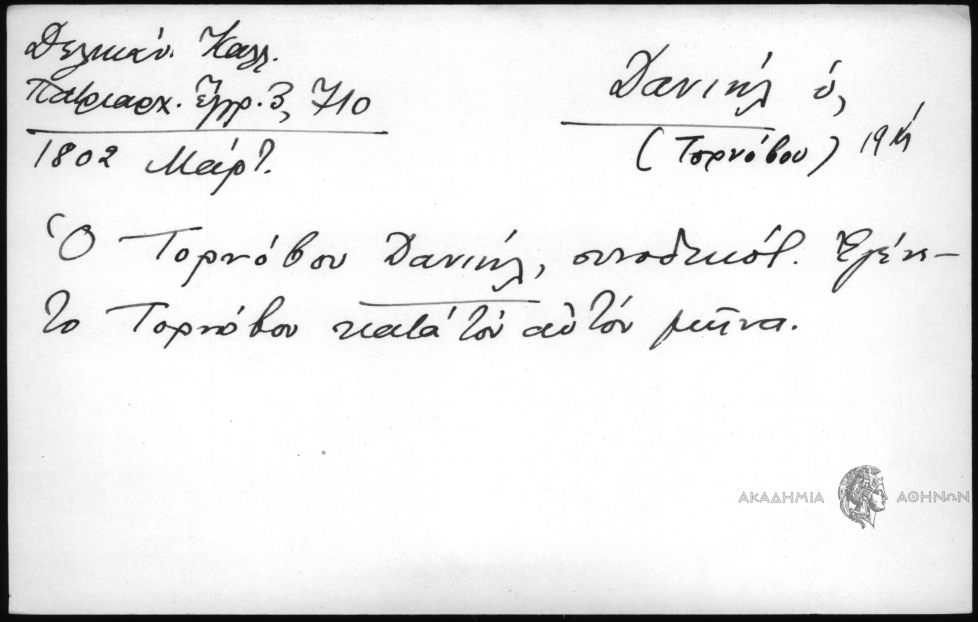 Δελικάν. Καλλ.
Πατριαρχ. Ἔγγρ. 3, 710
1802 Μάρτ.
Δανιήλ ὁ,
(Τορνόβου) 19
Ὁ Τορνόβου Δανιήλ, συνοδικός. Ἐγένε-
το Τορνόβου κατά τόν αὐτόν μῆνα.
ΑΚΑΔΗΜΙΑ ΑΘΗΝΩΝ